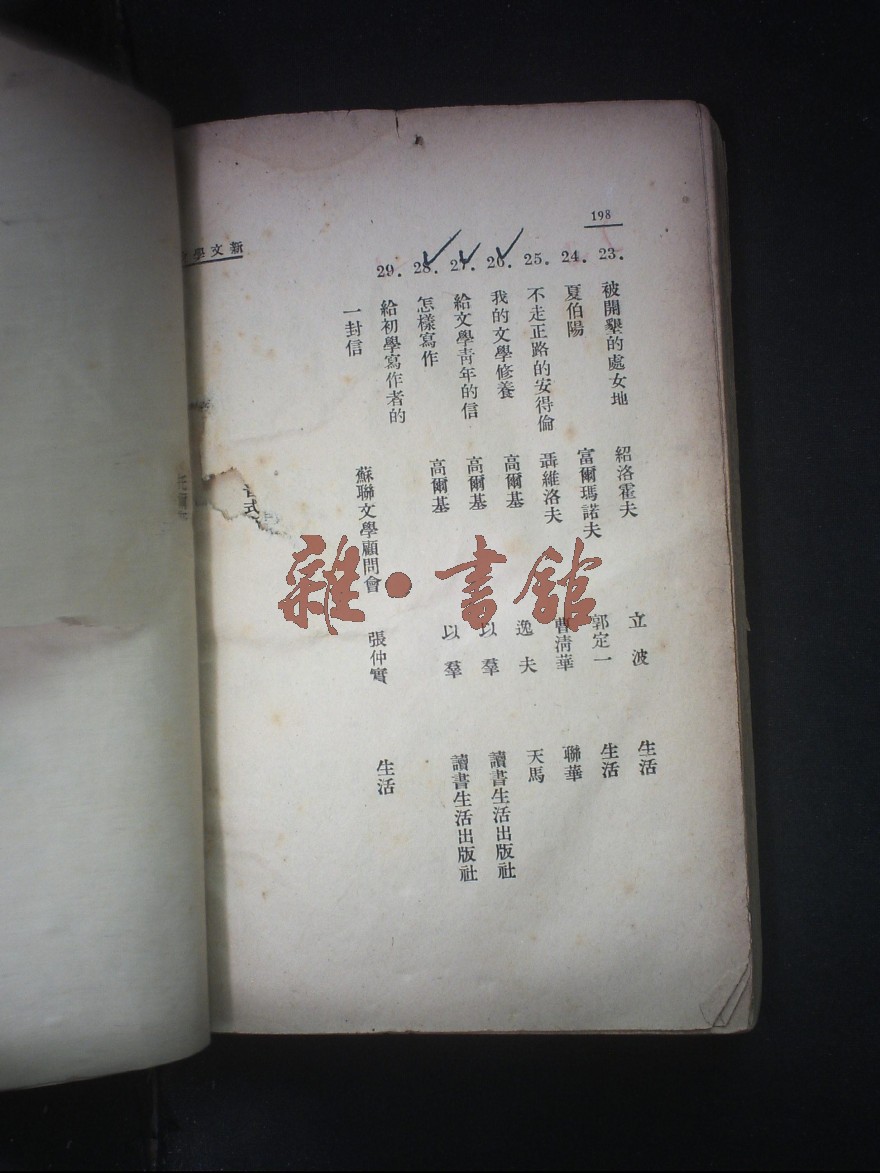 198
23. 被開墾的處女地 紹洛霍夫 立波 生活
24. 夏伯陽 富爾瑪諾夫 郭定一 生活
25. 不走正路的安得倫 聶維洛夫 曹淸華 聯華
26. 我的文學修養 高爾基 逸夫 天馬
27. 給文學靑年的信 高爾基 以羣 讀書生活出版社
28. 怎樣寫作 高爾基 以羣 讀書生活出版社
29. 給初學寫作者的
一封信 蘇聯文學顧問會 張仲實 生活
新文學
雜·書館